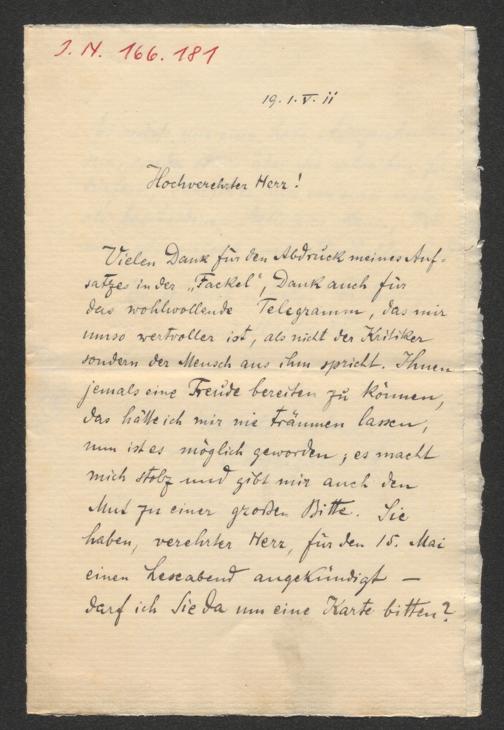 I. N. 166.181
19. 1. V. 11
Hochverehrter Herr!
Vielen Dank für den Abdruck meines Auf-
satzes in der „Fackel“, Dank auch für
das wohlwollende Telegramm, das mir
umso wertvoller ist, als nicht der Kritiker
sondern der Mensch aus ihm spricht. Ihnen
jemals eine Freude bereiten zu können,
das hätte ich mir nie träumen lassen,
nun ist es möglich geworden; es macht
mich stolz und gibt mir auch den
Mut zu einer großen Bitte. Sie
haben, verehrter Herr, für den 15. Mai
einen Leseabend angekündigt —
darf ich Sie da um eine Karte bitten?